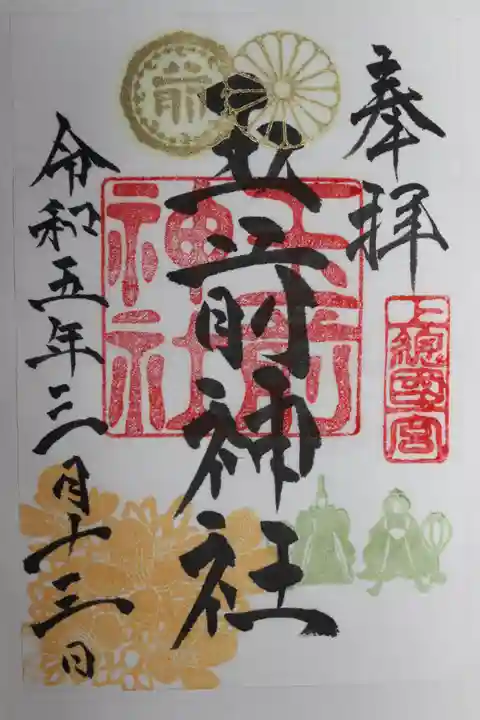 奉拝
上總國一宮
玉前神社
玉前
神社
前
令和五年三月十三日